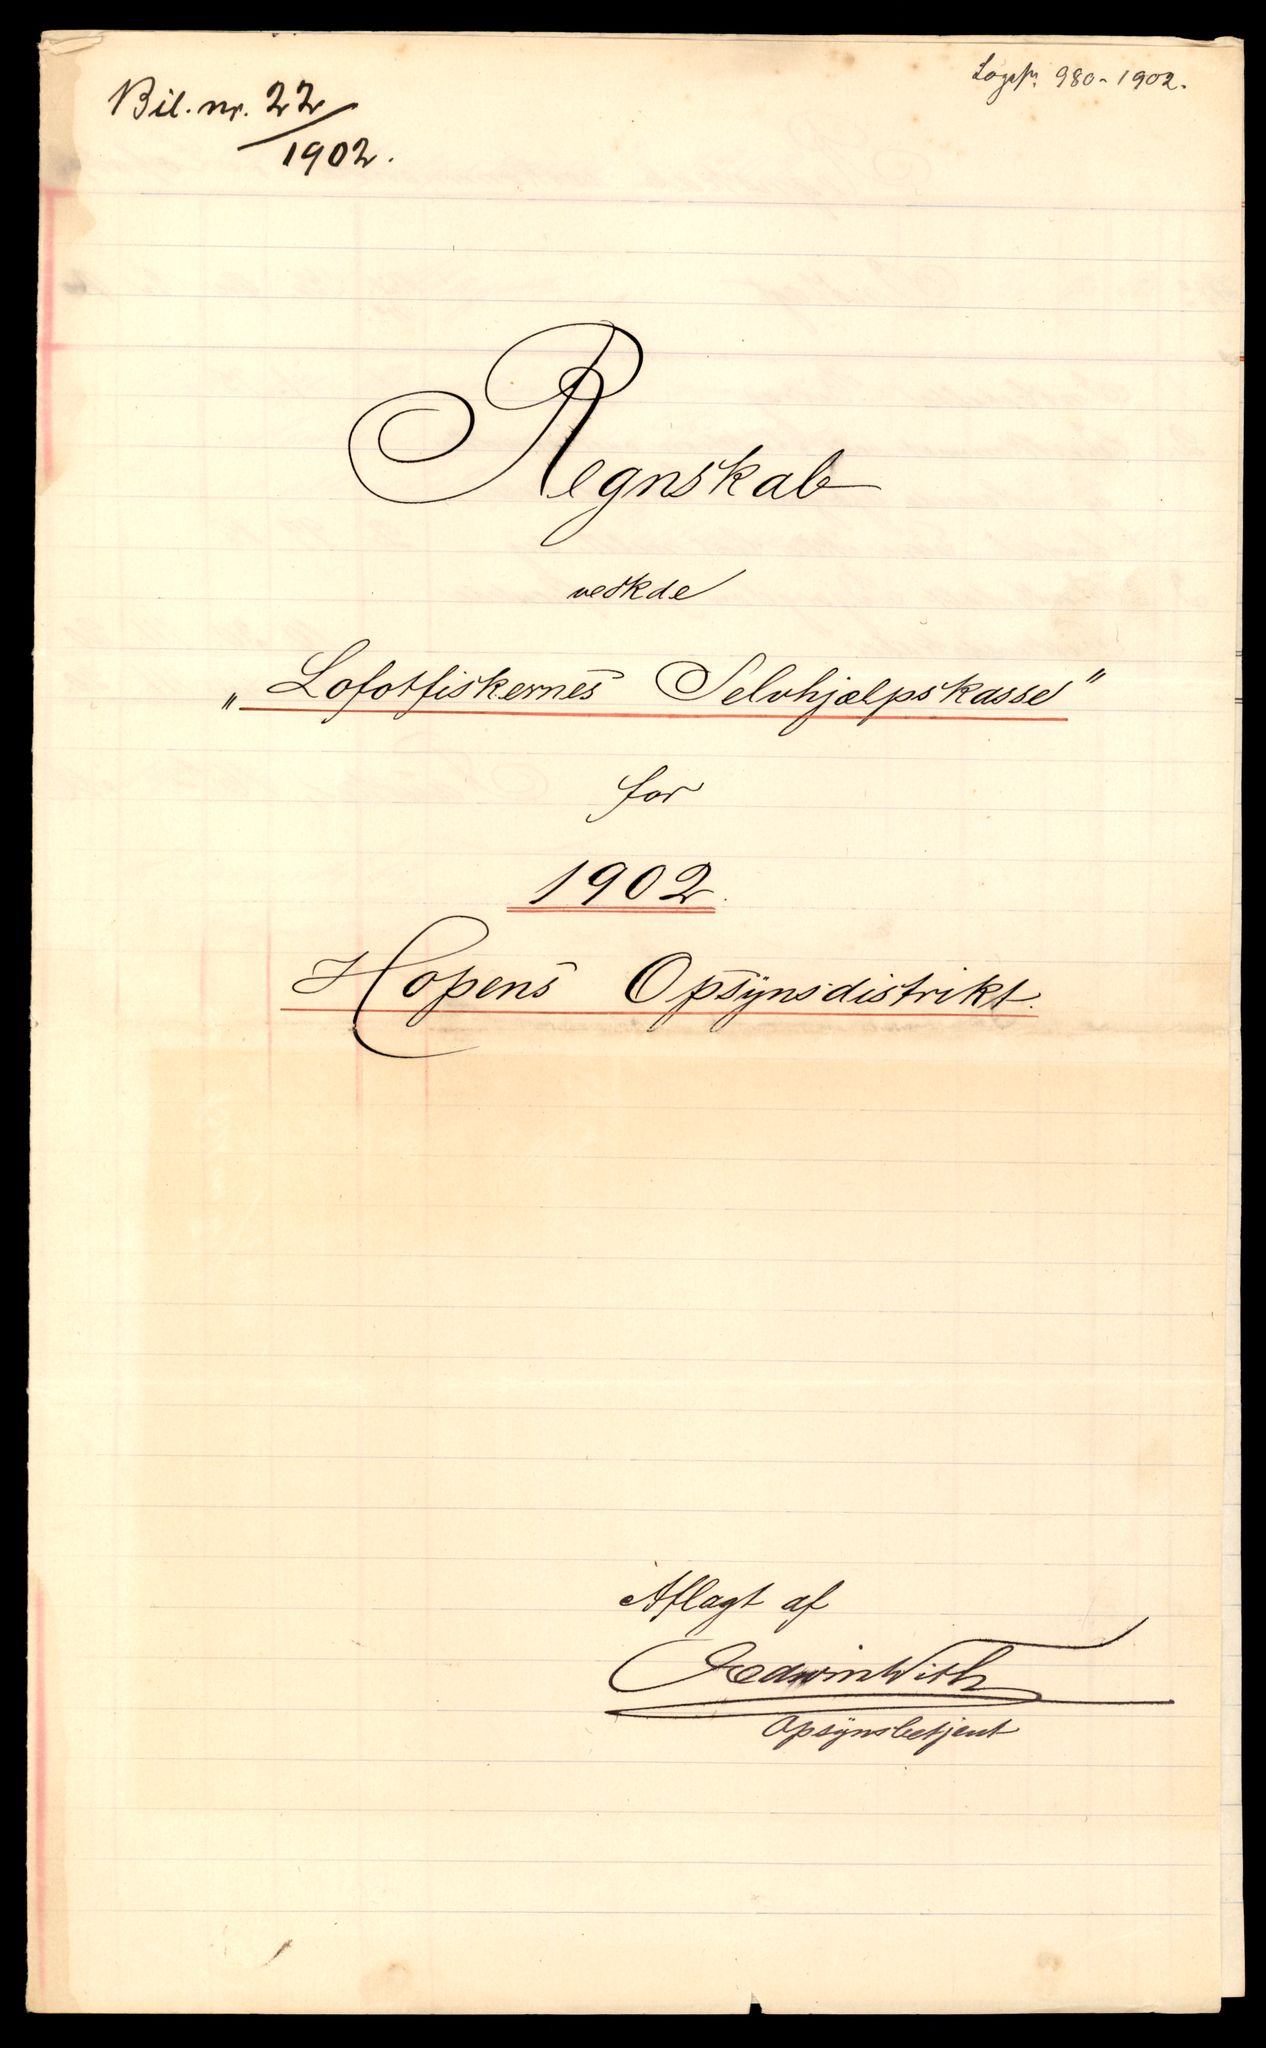 Bil. nr. 22
/1902.
980-1902.
Regnskab
vedkde
„Lofotfiskernes Selvhjælpskasse"
for
1902.
Hopens Opsynsdistrikt.
Aflagt af
Edwin With
Opsynsbetjent